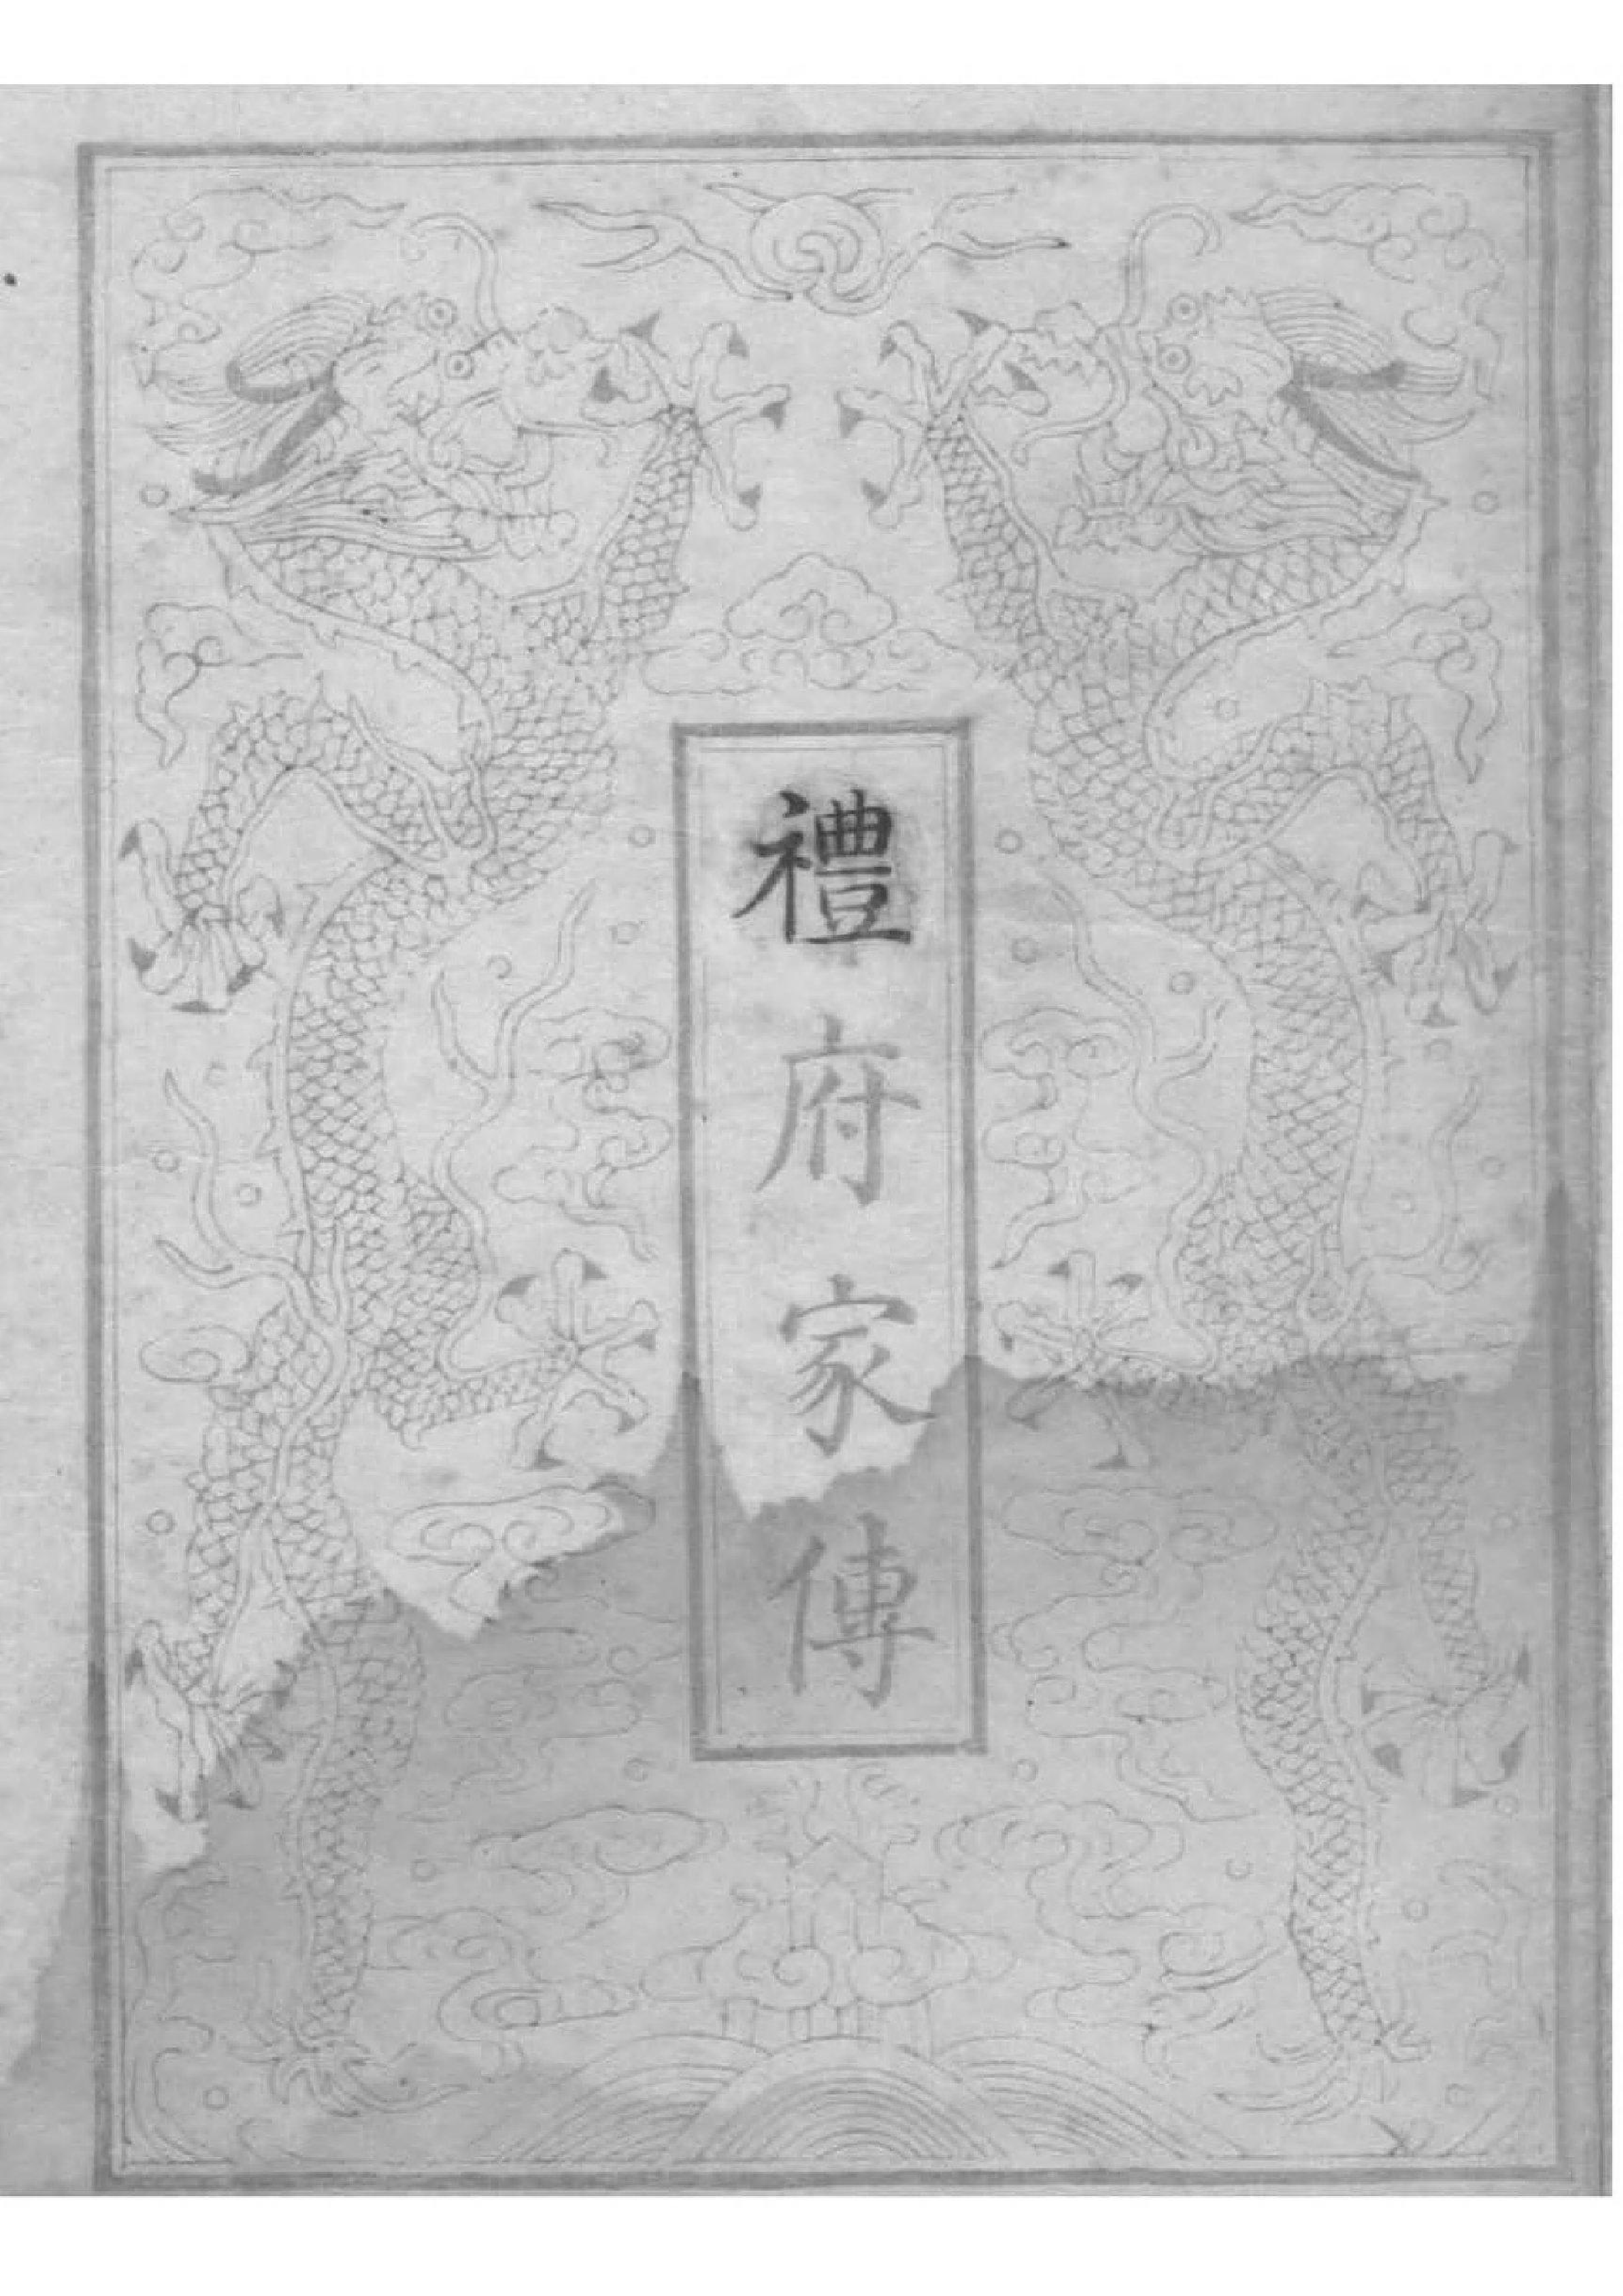 禮府家傳